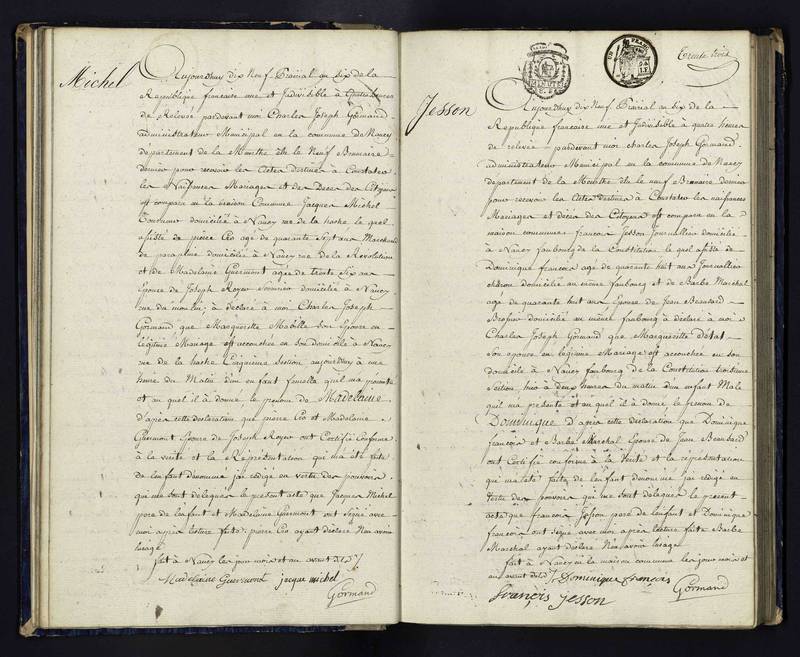 Michel
Aujourdhuy dix Neuf Prairial an six de la
Republique francaise une et Indivisible à quatre heures
de Relevée pardevant moi Charles Joseph Gormand
administrateur Municipal en la commune de Nancy
département de la Meurthe élu le Neuf Brumaire
dernier pour recevoir les Actes destinés à Constater
les Naissances Mariages et de Deces des Citoyens
est comparu en la maison Commune Jacques Michel
Tourneur domicilié à Nancy rue de la hache le quel
assisté de pierre Cro agé de quarante Sept ans Marchand
de parapluie domicilié à Nancy rue de la Révolution
et de Madelaine Guermont agée de trente Six ans
Epouse de Joseph Royer domicilié à Nancy
rue du moulin; à déclaré à moi Charles Joseph
Gormand que Marguerithe Mabille son Epouse en
légitime Mariage est accouchée en son domicile à Nancy
rue de la hache Cinquième Section aujourdhuy à une
heure du Matin d'un enfant femelle quil ma présenté
et au quel il à donné le prenom de Madelaine
d'après cette déclaration que pierre Cro et Madelaine
Guermont Epouse de Joseph Royer ont Certifié Conforme
à la vérité et la Représentation qui m'a été faite
de l'enfant denommé j'ai rédigé en vertu des pouvoirs
qui me sont délegués le présent acte que Jacques Michel
pere de l'enfant et Madelaine Guermont ont signé avec
moi après lecture faite; pierre Cro ayant déclaré Non avoir
lusage
fait à Nancy les jour mois et an avant dits
Madelaine Guermont jacque michel
Gormand
trente trois
Jesson
Aujourdhuy dix Neuf Prairial an six de la
Republique française une et Indivisible à quatre heures
de relevée pardevant moi charles Joseph Gormand
administrateur Municipal en la commune de Nancy
departement de la Meurthe élu le neuf Brumaire dernier
pour recevoir les Actes destinés à Constater les naissances
Mariages et deces des Citoyens est comparu en la
maison commune francois Jesson Journallier domicilié
à Nancy faubourg de la Constitution le quel assisté de
Dominique francois agé de quarante huit ans Journallier
domicilié au même faubourg et de Barbe Marchal
agée de quarante huit ans Epouse de Jean Beausard
domicilié au même faubourg à déclaré à moi
Charles Joseph Gormand que Margueritte Détat
Son epouse en légitime Mariage est accouchée en son
domicile à Nancy faubourg de la Constitution troisieme
Section hier à deux heures du matin d'un enfant Male
quil ma présenté et au quel il à donné le prenom de
Dominique d'après cette déclaration que Dominique
françois et Barbe Marchal Epouse de Jean Beausard
ont Certifié conforme à la Vérité et la réprésentation
qui m'a été faite de l'enfant denommé j'ai rédigé en
Vertu des pouvoirs qui me sont délegués le présent
acte que françois Jesson pere de l'enfant et Dominique
francois ont signé avec moi après lecture faite Barbe
Marchal ayant déclaré Non avoir lusage
fait à Nancy en la maison commune les jour mois et
an avant dits Dominique françois
françois Jesson Gormand